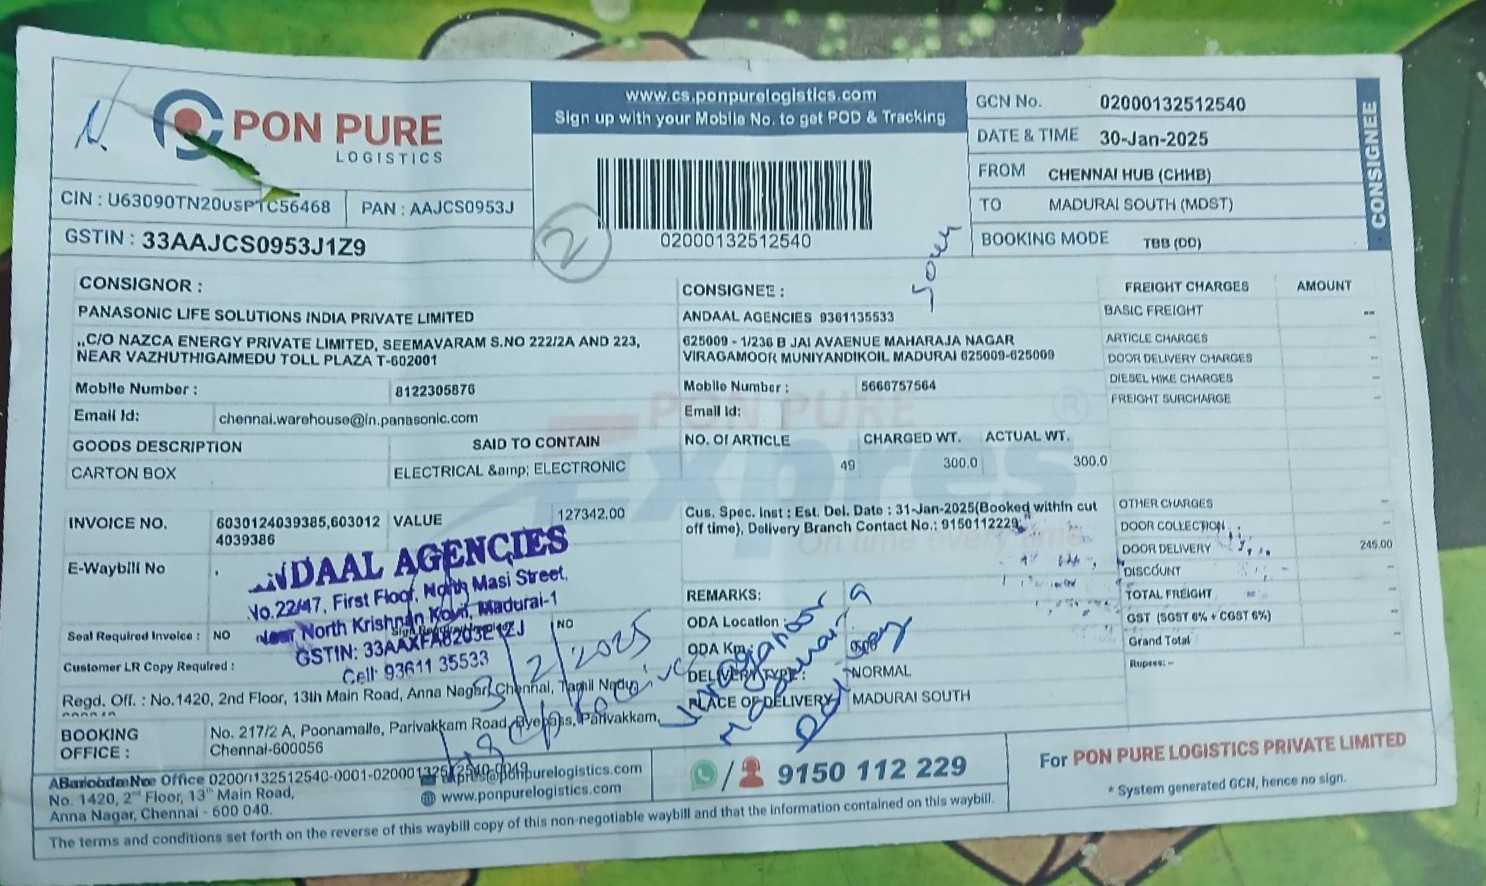 PON PURE
LOGISTICS
www.cs.ponpurelogistics.com
Sign up with your Mobile No. to get POD & Tracking
02000132512540
GCN No. 02000132512540
DATE & TIME 30-Jan-2025
FROM CHENNAI HUB (CHHB)
TO MADURAI SOUTH (MDST)
BOOKING MODE TBB (DD)
CONSIGNEE
CIN : PAN : AAJCS0953J
GSTIN : 33AAJCS0953J1Z9
2
CONSIGNOR :
PANASONIC LIFE SOLUTIONS INDIA PRIVATE LIMITED
,,C/O NAZCA ENERGY PRIVATE LIMITED, SEEMAVARAM S.NO 222/2A AND 223,
NEAR VAZHUTHIGAIMEDU TOLL PLAZA T-602001
Mobile Number : 8122305876
Email Id: chennai.warehouse@in.panasonic.com
GOODS DESCRIPTION SAID TO CONTAIN
CARTON BOX ELECTRICAL &amp; ELECTRONIC
CONSIGNEE :
ANDAAL AGENCIES 9361135533
625009 - 1/236 B JAI AVAENUE MAHARAJA NAGAR
VIRAGAMOOR MUNIYANDIKOIL MADURAI 625009-625009
Mobile Number : 5666757564
Email Id:
NO. Of ARTICLE CHARGED WT. ACTUAL WT.
49 300.0 300.0
PON PURE
Expres
On time every time
FREIGHT CHARGES AMOUNT
BASIC FREIGHT --
ARTICLE CHARGES -
DOOR DELIVERY CHARGES -
DIESEL HIKE CHARGES -
FREIGHT SURCHARGE -
OTHER CHARGES -
DOOR COLLECTION -
DOOR DELIVERY 245.00
DISCOUNT -
TOTAL FREIGHT -
GST (SGST 6% + CGST 6%) -
Grand Total -
Rupees: -
INVOICE NO. 6030124039385,603012
4039386
VALUE 127342.00
E-Waybill No .
Cus. Spec. Inst : Est. Del. Date : 31-Jan-2025(Booked within cut
off time), Delivery Branch Contact No.: 9150112229
ANDAAL AGENCIES
No.22/47, First Floor, North Masi Street,
Near North Krishnan Kovil, Madurai-1
GSTIN: 33AAXFA8203E1ZJ
Cell: 93611 35533
Seal Required Invoice : NO NO
Customer LR Copy Required :
3/2/2025
REMARKS:
ODA Location :
ODA Km :
DELIVERY TYPE : NORMAL
PLACE OF DELIVERY MADURAI SOUTH
Regd. Off. : No.1420, 2nd Floor, 13th Main Road, Anna Nagar, Chennai, Tamil Nadu,
BOOKING
OFFICE :
No. 217/2 A, Poonamalle, Parivakkam Road, Byepass, Parivakkam,
Chennai-600056
Office 02000132512540-0001-02000132512540-0049
No. 1420, 2nd Floor, 13th Main Road,
Anna Nagar, Chennai - 600 040.
www.ponpurelogistics.com
/ 9150 112 229
For PON PURE LOGISTICS PRIVATE LIMITED
* System generated GCN, hence no sign.
The terms and conditions set forth on the reverse of this waybill copy of this non-negotiable waybill and that the information contained on this waybill.